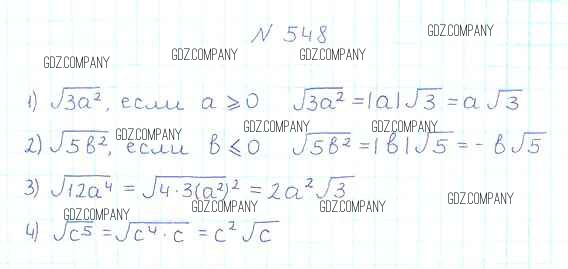 N 548
GDZ.COMPANY GDZ.COMPANY GDZ.COMPANY GDZ.COMPANY
1) √3a², если a ⩾ 0 √3a² = |a|√3 = a√3
GDZ.COMPANY GDZ.COMPANY GDZ.COMPANY
2) √5b², если b ⩽ 0 √5b² = |b|√5 = -b√5
3) √12a⁴ = √4·3(a²)² = 2a²√3
GDZ.COMPANY GDZ.COMPANY GDZ.COMPANY GDZ.COMPANY
4) √c⁵ = √c⁴·c = c²√c